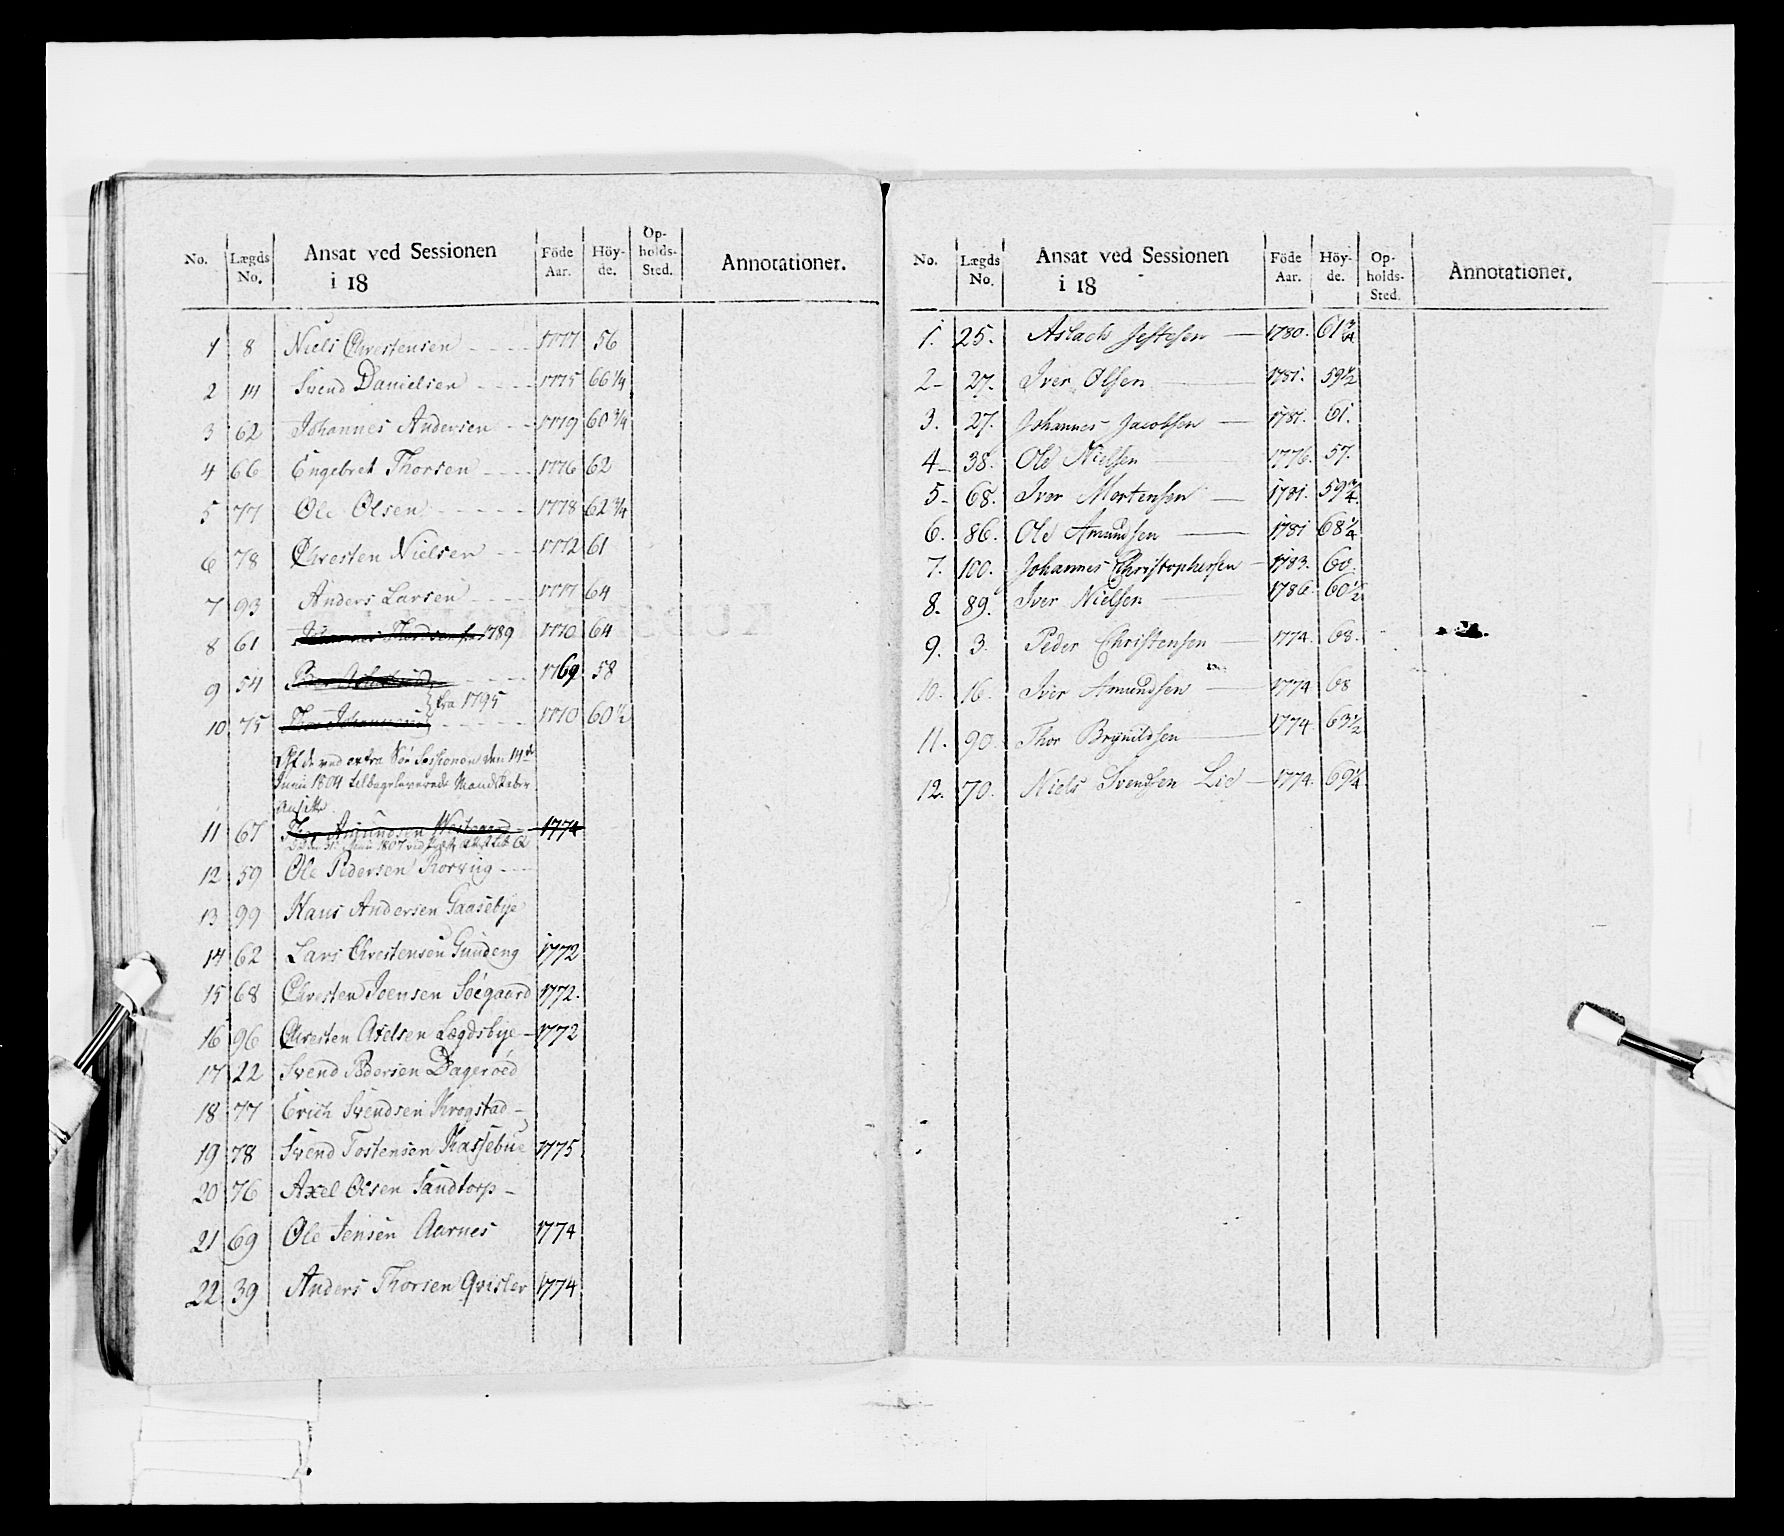 No. Lægds No. Ansat ved Sessionen i 18 Föde Aar. Höy- de. Op- holds- Sted. Annotationer.
1 8 Niels Chrestensen 1777 56
2 14 Svend Danielsen 1775 66 1/4
3 62 Johannes Andersen 1779 60 3/4
4 66 Engebret Thorsen 1776 62
5 77 Ole Olsen 1778 62 3/4
6 78 Chresten Nielsen 1772 61
7 93 Anders Larsen 1777 64
8 61 1789 1770 64
9 54 1769 58
fra 1795
10 75 1770 60 1/2
ved extra Sessionen den 14de
Junii 1804 tilbageleverede Mandskaber
11 67 Thor Amundsen 1774
12 59 Ole Pedersen
13 99 Hans Andersen Gaasebye
14 62 Lars Chrestensen Gundeng 1772
15 68 Chresten Joensen Söegaard 1772.
16 96 Chresten Axelsen Lægdsbye 1772
17 22 Svend Pedersen Dageröed
18 77 Erich Svendsen Krogstad
19 78 Svend Tostensen Kassebue 1775
20 76 Axel Olsen Sandtorp
21 69 Ole Jensen Aarnes 1774
22 39 Anders Thorsen Qvisler 1774
No. Lægds No. Ansat ved Sessionen i 18 Föde Aar. Höy- de. Op- holds- Sted. Annotationer.
1. 25. Aslach 1780. 61 3/4
2 27. Iver Olsen 1781. 59 1/2
3. 27. Johannes Jacobsen 1781. 61.
4 38. Ole Nielsen 1776. 57.
5 68. Iver Mortensen 1781. 59 3/4
6. 86. Ole Amundsen 1781 68 1/4
7. 100. Johannes Christophersen 1783. 60.
8. 89. Iver Nielsen 1786. 60 1/2
9. 3. Peder Christensen 1774. 68.
10. 16. Iver Amundsen 1774 68
11. 90. Thor Brynildsen 1774 63 1/2
12. 70. Niels Svendsen Lie 1774. 69 1/4